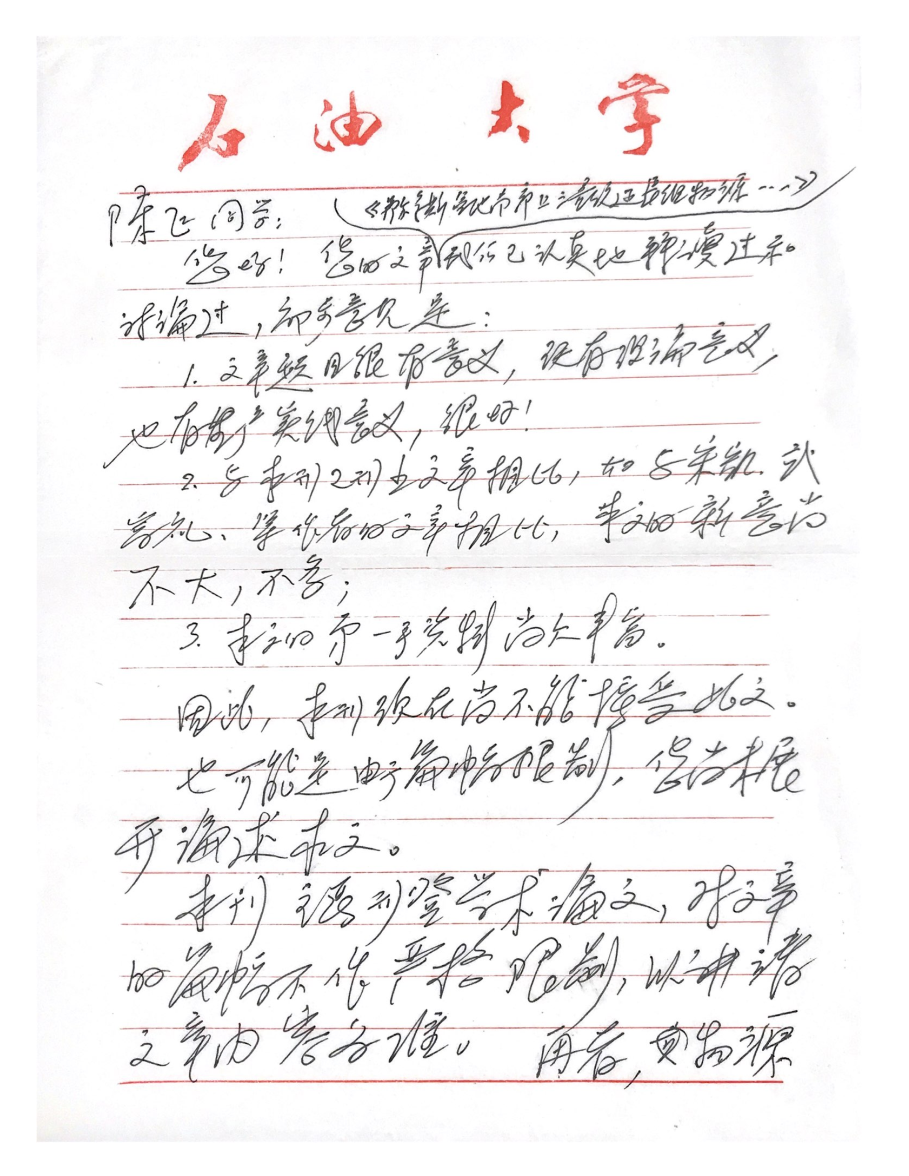 石油大学
陈飞同学:
《鄂尔多斯盆地西 物源…》
您好! 您的文章我们已认真地审读过和
讨论过,初步意见是:
1. 文章题目很有意义,既有理论意义,
也有生产实线意义,很好!
2. 与本刊已刊出文章相比,如与宋凯、
等作者的文章相比,本文的新意尚
不大,不多;
3. 本文的第一手资料尚欠丰富。
因此,本刊现在尚不能接受此文。
也可能是由于篇幅限制,您尚未展
开论述本文。
本刊主要刊登学术论文,对文章
的篇幅不作严格限制,以讲清
文章内容为准。 再者,物源